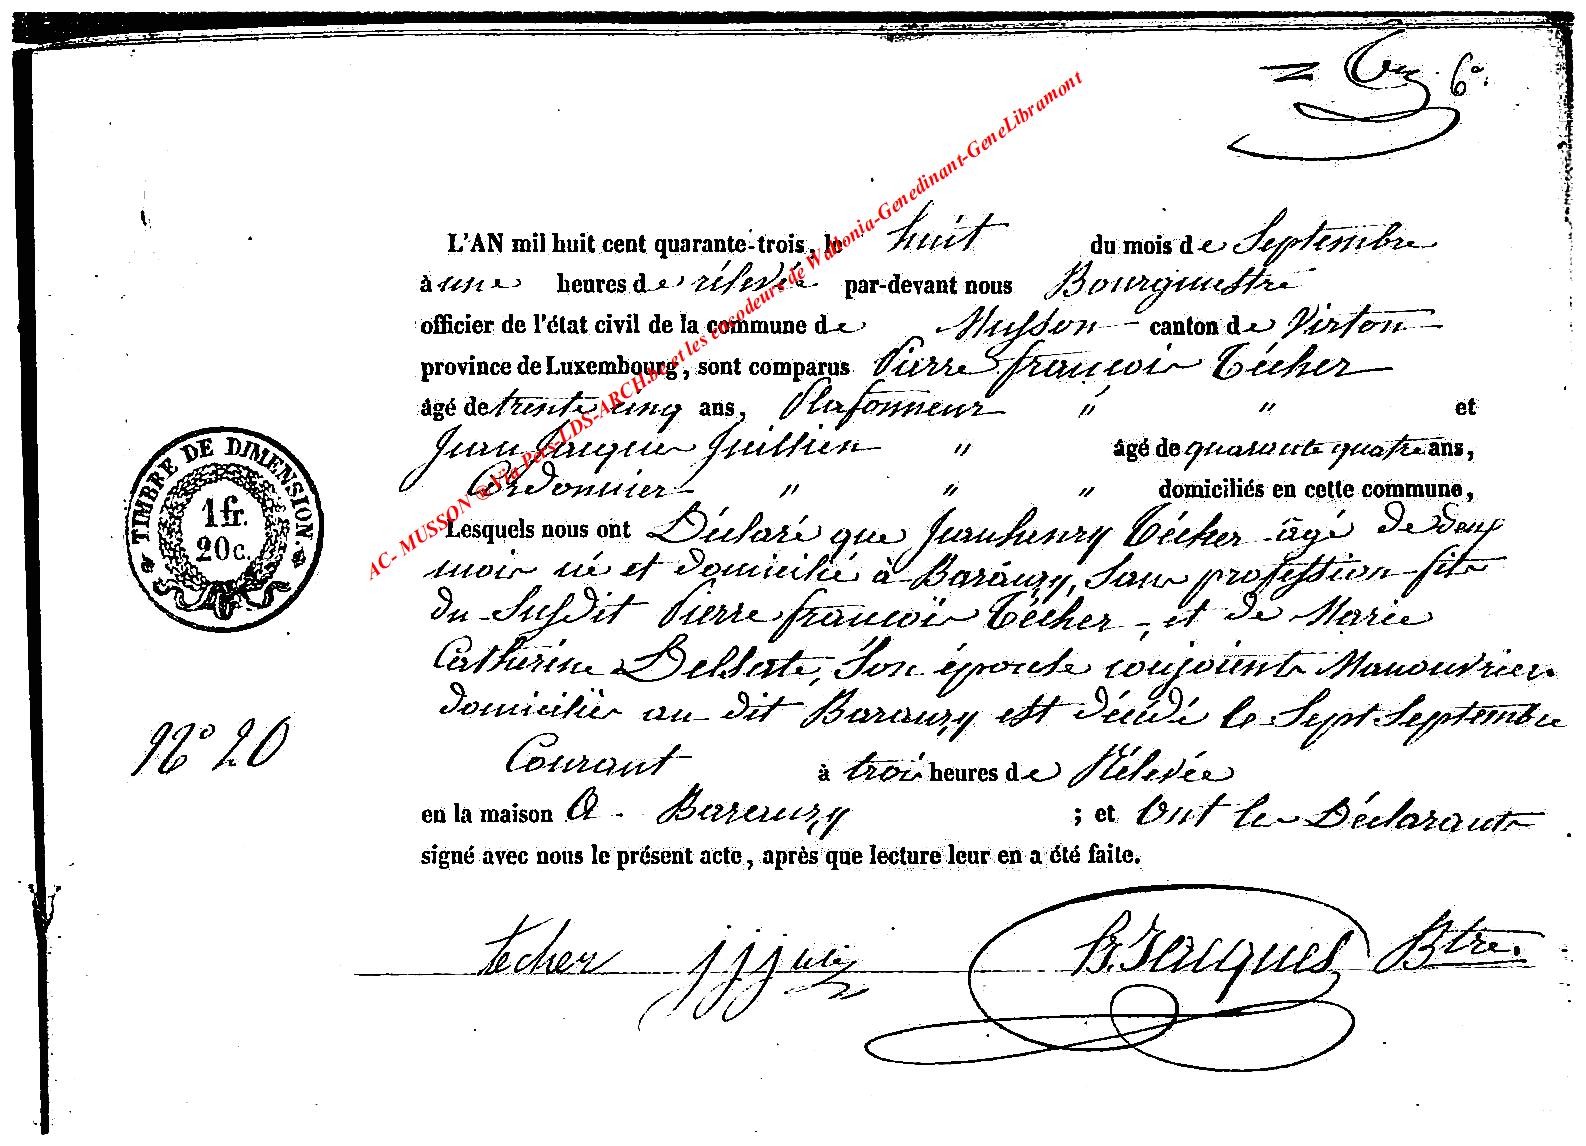 6e.
L'AN mil huit cent quarante-trois, le huit du mois de Septembre
à une heures de rélevée par-devant nous Bourgmestre
officier de l'état civil de la commune de Musson - canton de Virton
province de Luxembourg, sont comparus Pierre françois Técher
âgé de trente cinq ans, Plafonneur " " et
Jean Jacques Juillien " âgé de quarante quatre ans,
Cordonnier " " " domiciliés en cette commune,
Lesquels nous ont Déclaré que Jean henry Técher âgé de deux
mois né et domicilié à Baranzy, Sans profession fils
du Susdit Pierre françois Técher, et de Marie
Catherine Delsate, Son épouse conjoints Manouvriers
domiciliés au dit Baranzy est décédé le Sept Septembre
Courant à trois heures de Rélevée
en la maison A - Baranzy ; et Ont les Déclarants
signé avec nous le présent acte, après que lecture leur en a été faite.
TIMBRE DE DIMENSION.
1 fr.
20 c.
N° 20
techer jjjuli B. Jacques Btre.
AC- MUSSON @ Via Pers-LDS-ARCH.be et les encodeurs de Wallonia-Genedinant-GeneLibramont